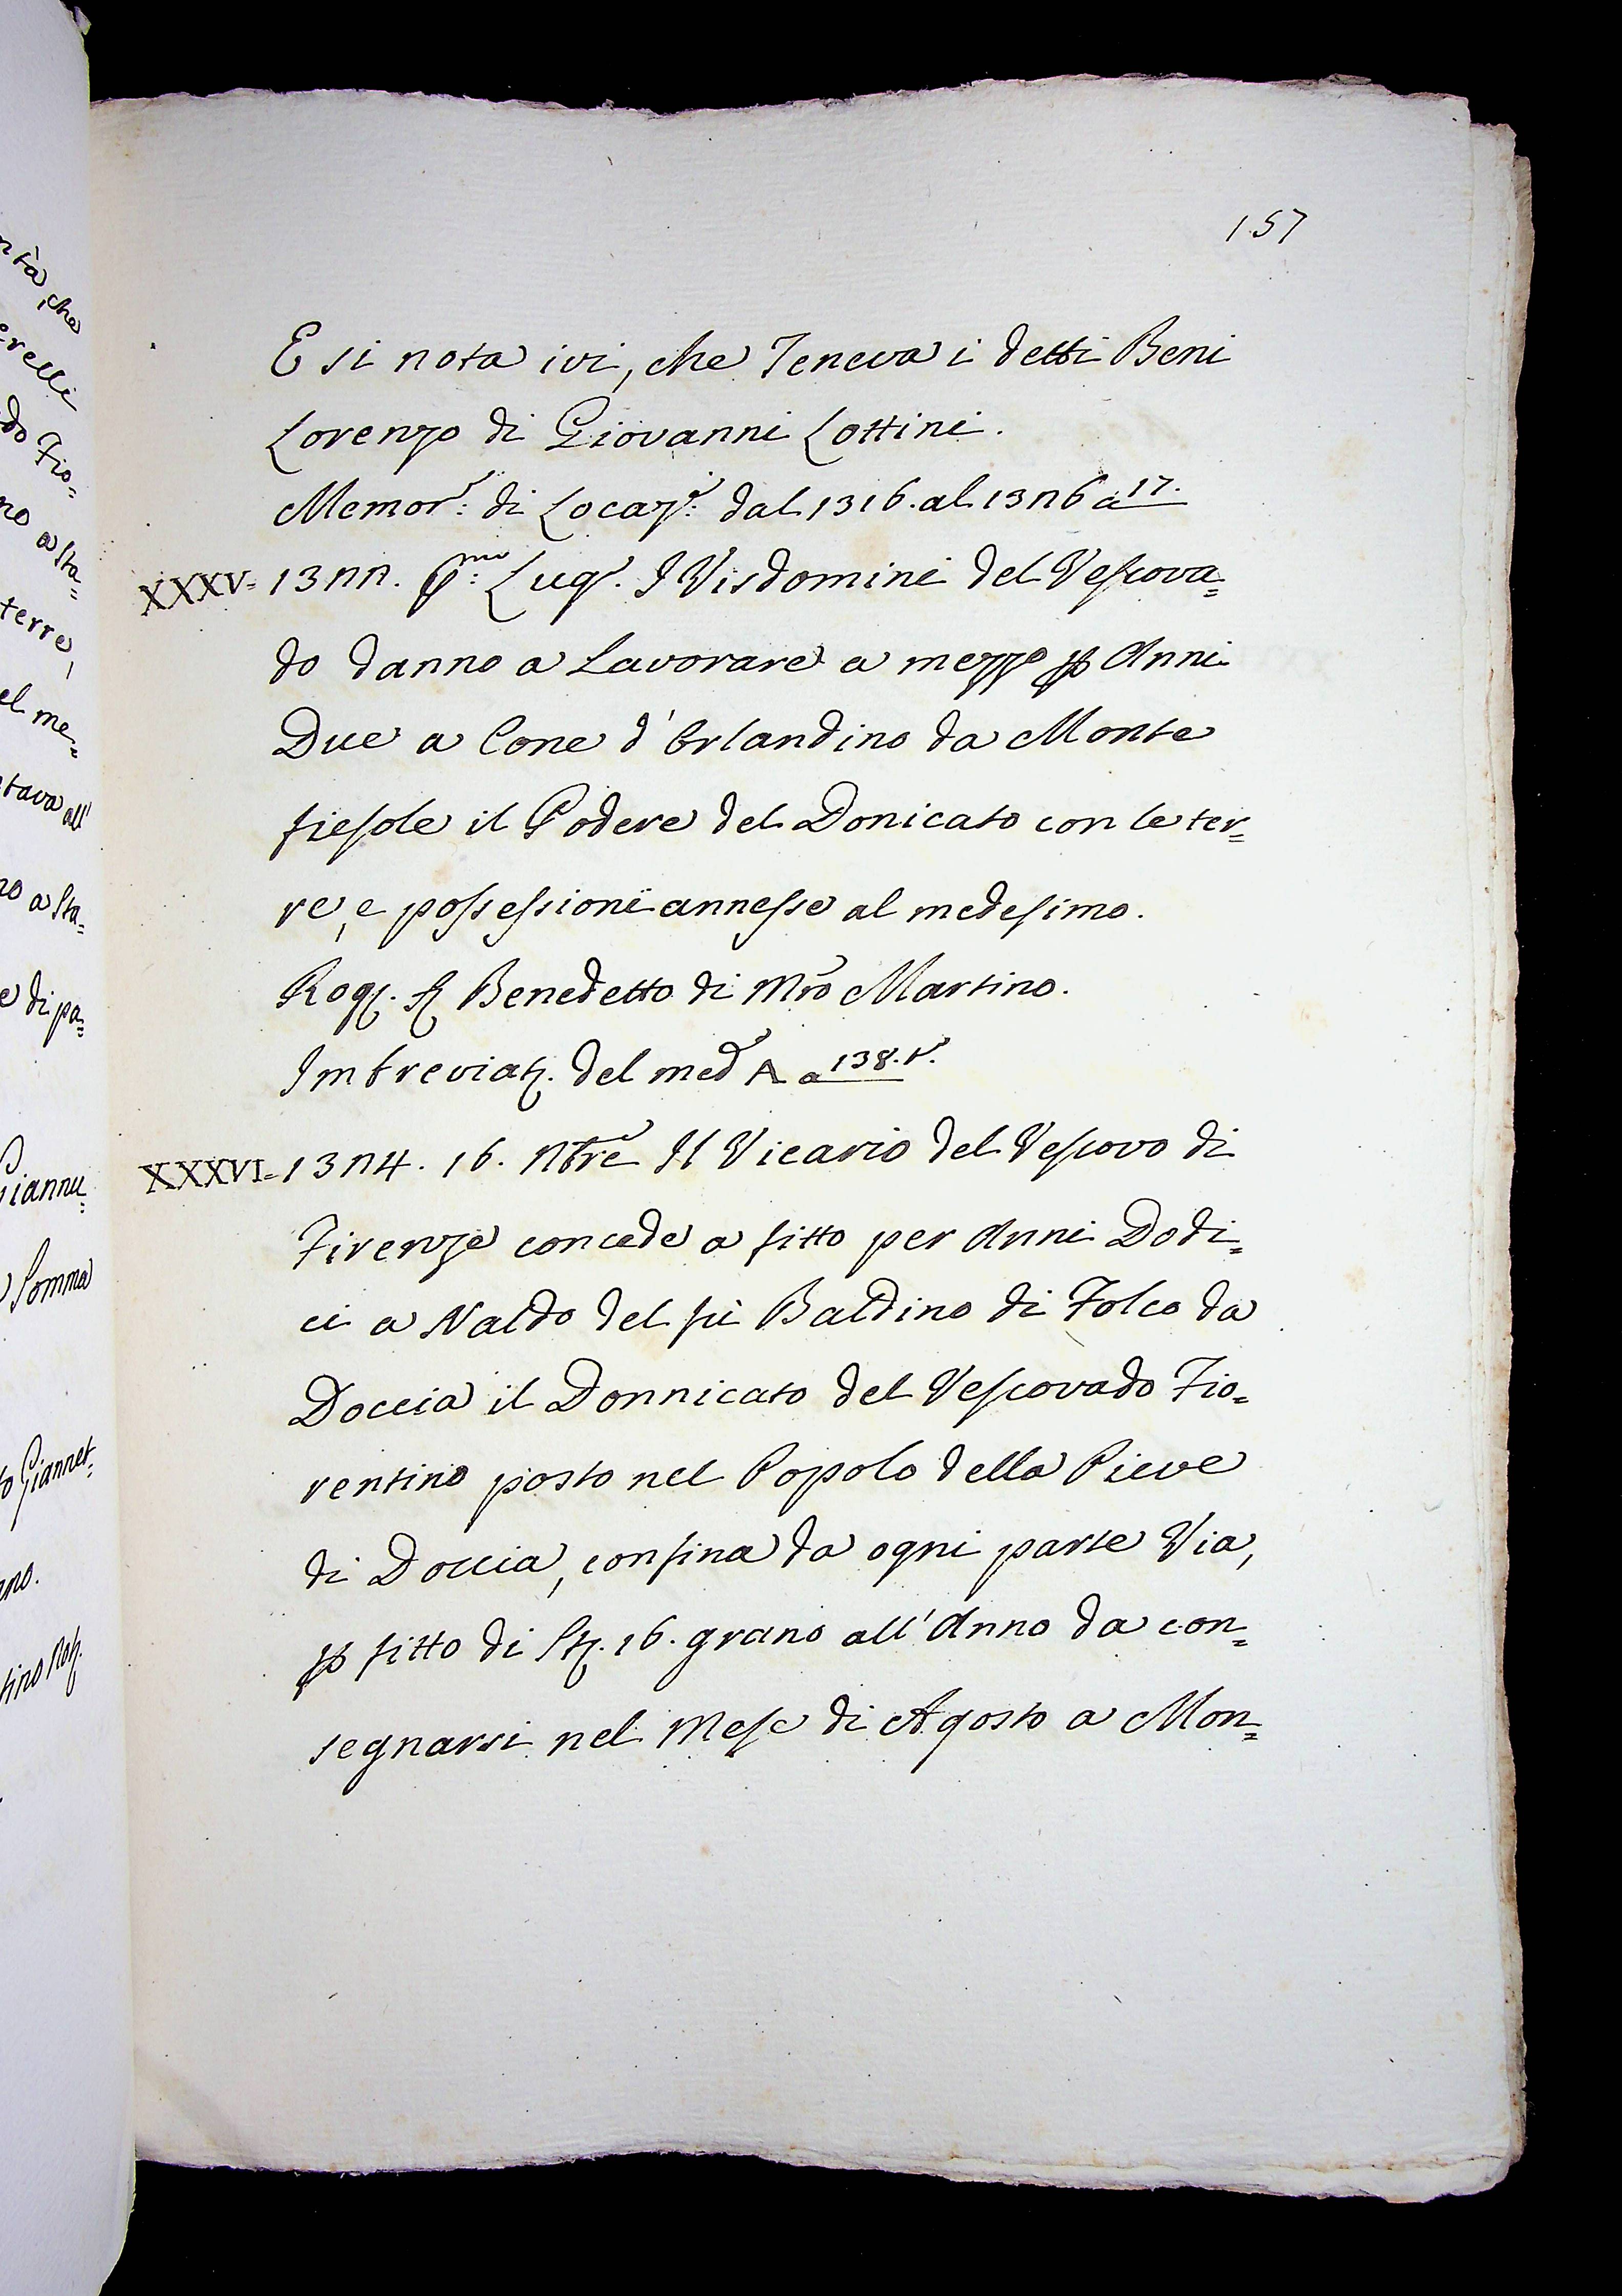 157
E si nota ivi, che Teneva i detti Beni
Lorenzo di Giovanni Lottini.
Memor.e di Locaz.e dal 1316. al 1326 a 17.
XXXV= 1322. P.mo Lug. I Visdomini del Vescova=
do danno a Lavorare a mezzo p Anni
Due a Cone d'Orlandino da Monte
fiesole il Podere del Donicato con le ter=
re, e possessioni annesse al medesimo.
Rog. S. Benedetto di Mro Martino.
Imbreviat. del med A a 138. t.
XXXVI= 1324. 16. Nbre Il Vicario del Vescovo di
Firenze concede a fitto per Anni Dodi=
ci a Naldo del fù Baldino di Folco da
Doccia il Donnicato del Vescovado Fio=
rentino posto nel Popolo della Pieve
di Doccia, confina da ogni parte Via,
p fitto di St. 16. grano all'Anno da con=
segnarsi nel Mese di Agosto a Mon=
ntà, che
erelli
do Fio=
no a Sta=
terre,
el me=
tava all'
no a Sta=
e di pa=
Giannu=
Somma
to Giannet=
ano.
tino Rog.